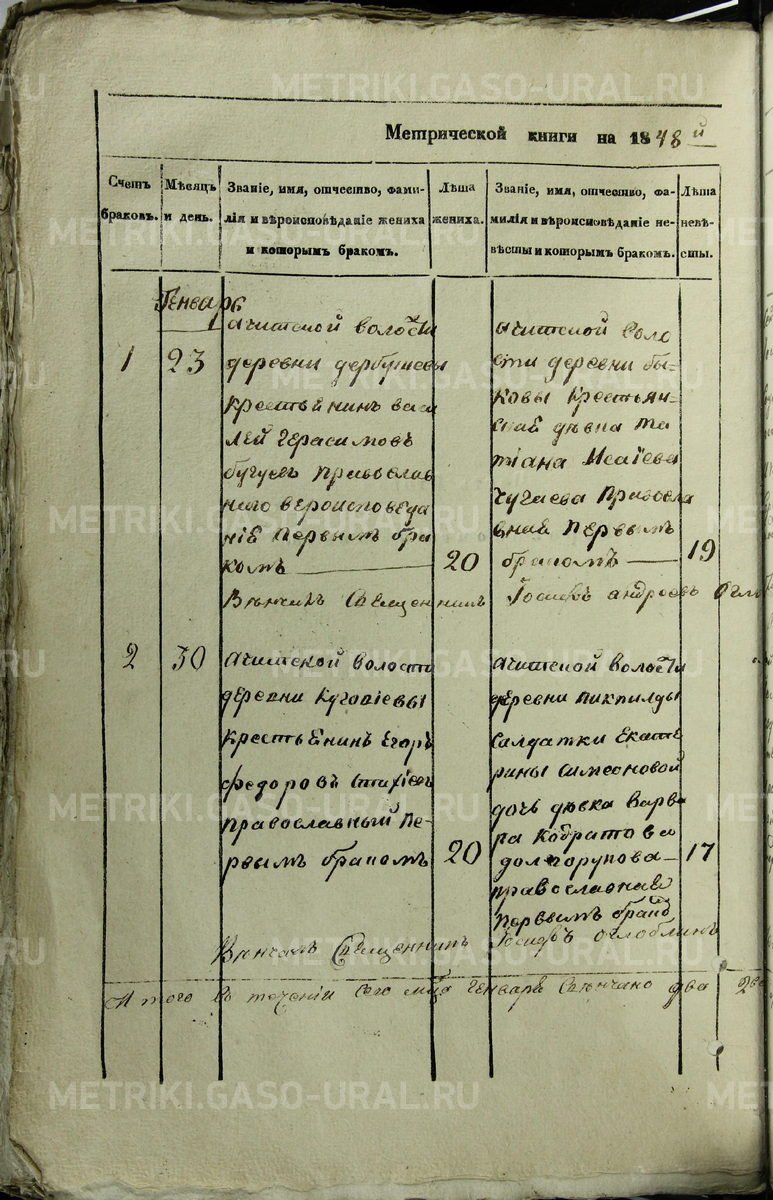 METRIKI.GASO-URAL.RU
Метрической книги на 1848й
Счетъ браковъ.
Мѣсяцъ и день.
Званіе, имя, отчество, фами-
лія и вѣроисповѣданіе жениха
и которымъ бракомъ.
Лѣта
жениха.
Званіе, имя, отчество, фа-
милія и вѣроисповѣданіе не-
вѣсты и которымъ бракомъ.
Лѣта
невѣ-
сты.
Генварь
1
23
ачитской волости
деревни
крестьянинъ васи
лей Герасимовъ
православ
наго вероисповеда
нія Первымъ бра
комъ
20
ачитской воло
сти деревни бы-
ковы крестьян-
ская дѣвка та
тіана Исаіева
Чугаева Правосла
вная Первымъ
бракомъ
19
Вѣнчалъ Священникъ Іосифъ андреевъ
2
30
ачитской волости
деревни
крестьянинъ Егоръ
федоровъ
православный Пе-
рвымъ бракомъ
20
ачитской волости
деревни
салдатки Екате
рины симеоновой
дочь дѣвка Варва
ра
долгорукова
православная
Первымъ
17
Вѣнчалъ Священникъ Іосифъ оглоблинъ
Итого въ теченіи сего мца Генваря вѣнчано два 2